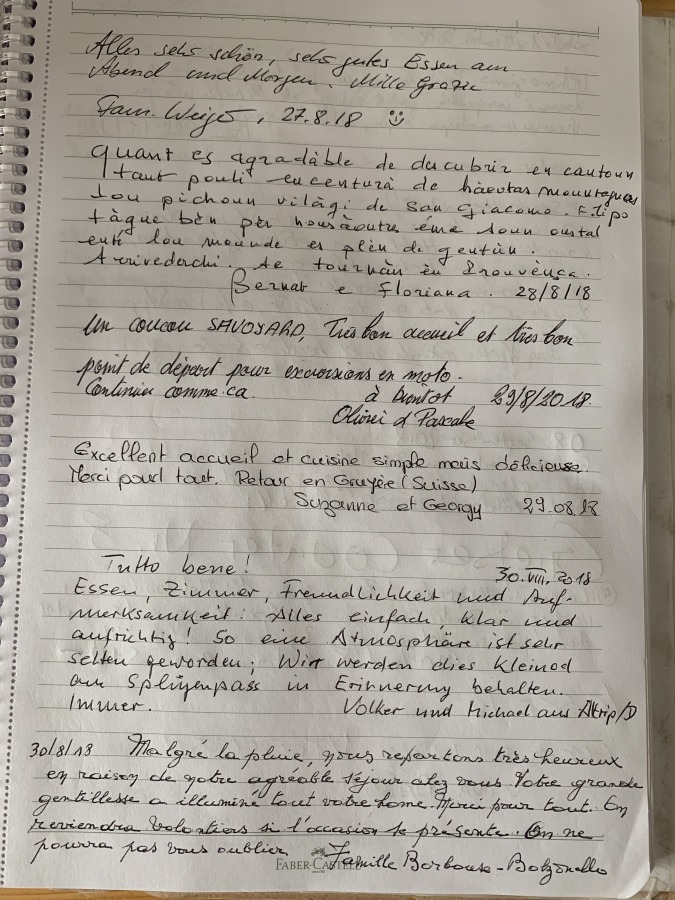 Alles sehr schön, sehr gutes Essen am
Abend und Morgen. Mille Grazie
Fam. , 27.8.18
Quant es agradàble de ducubrir en cantoun
tant pouli encentura de hàeutas mountagnas
lou pichoun vilàgi de San Giacomo. Filipo
tàque bèn pèr nousàoutre éme soun oustal
enté lou mounde es plèn de gentùn.
Arrivederchi. se tournan èn Prouvènça.
Bernat e Floriana. 28/8/18
Un coucou SAVOYARD, Très bon accueil et très bon
point de départ pour excursions en moto.
Continuer comme ca. à Bientot 29/8/2018.
et Pascale
Excellent accueil et cuisine simple mais délicieuse.
Merci pour tout. Retour en Gruyère (Suisse)
Suzanne et Georgy 29.08.18
Tutto bene! 30.VIII.2018
Essen, Zimmer, Freundlichkeit und Auf-
merksamkeit: Alles einfach, klar und
aufrichtig! So eine Atmosphäre ist sehr
selten geworden; Wir werden dies Kleinod
am Splügenpass in Erinnerung behalten.
Immer. Volker und Michael aus Altrip/D
30/8/18 Malgré la pluie, nous repartons très heureux
en raison de notre agréable séjour chez vous. Votre grande
gentillesse a illuminé tout votre home. Merci pour tout. On
reviendra volontiers si l'occasion se présente. On ne
pourra pas vous oublier Famille Barbouse-Bolzonello
FABER-CASTELL